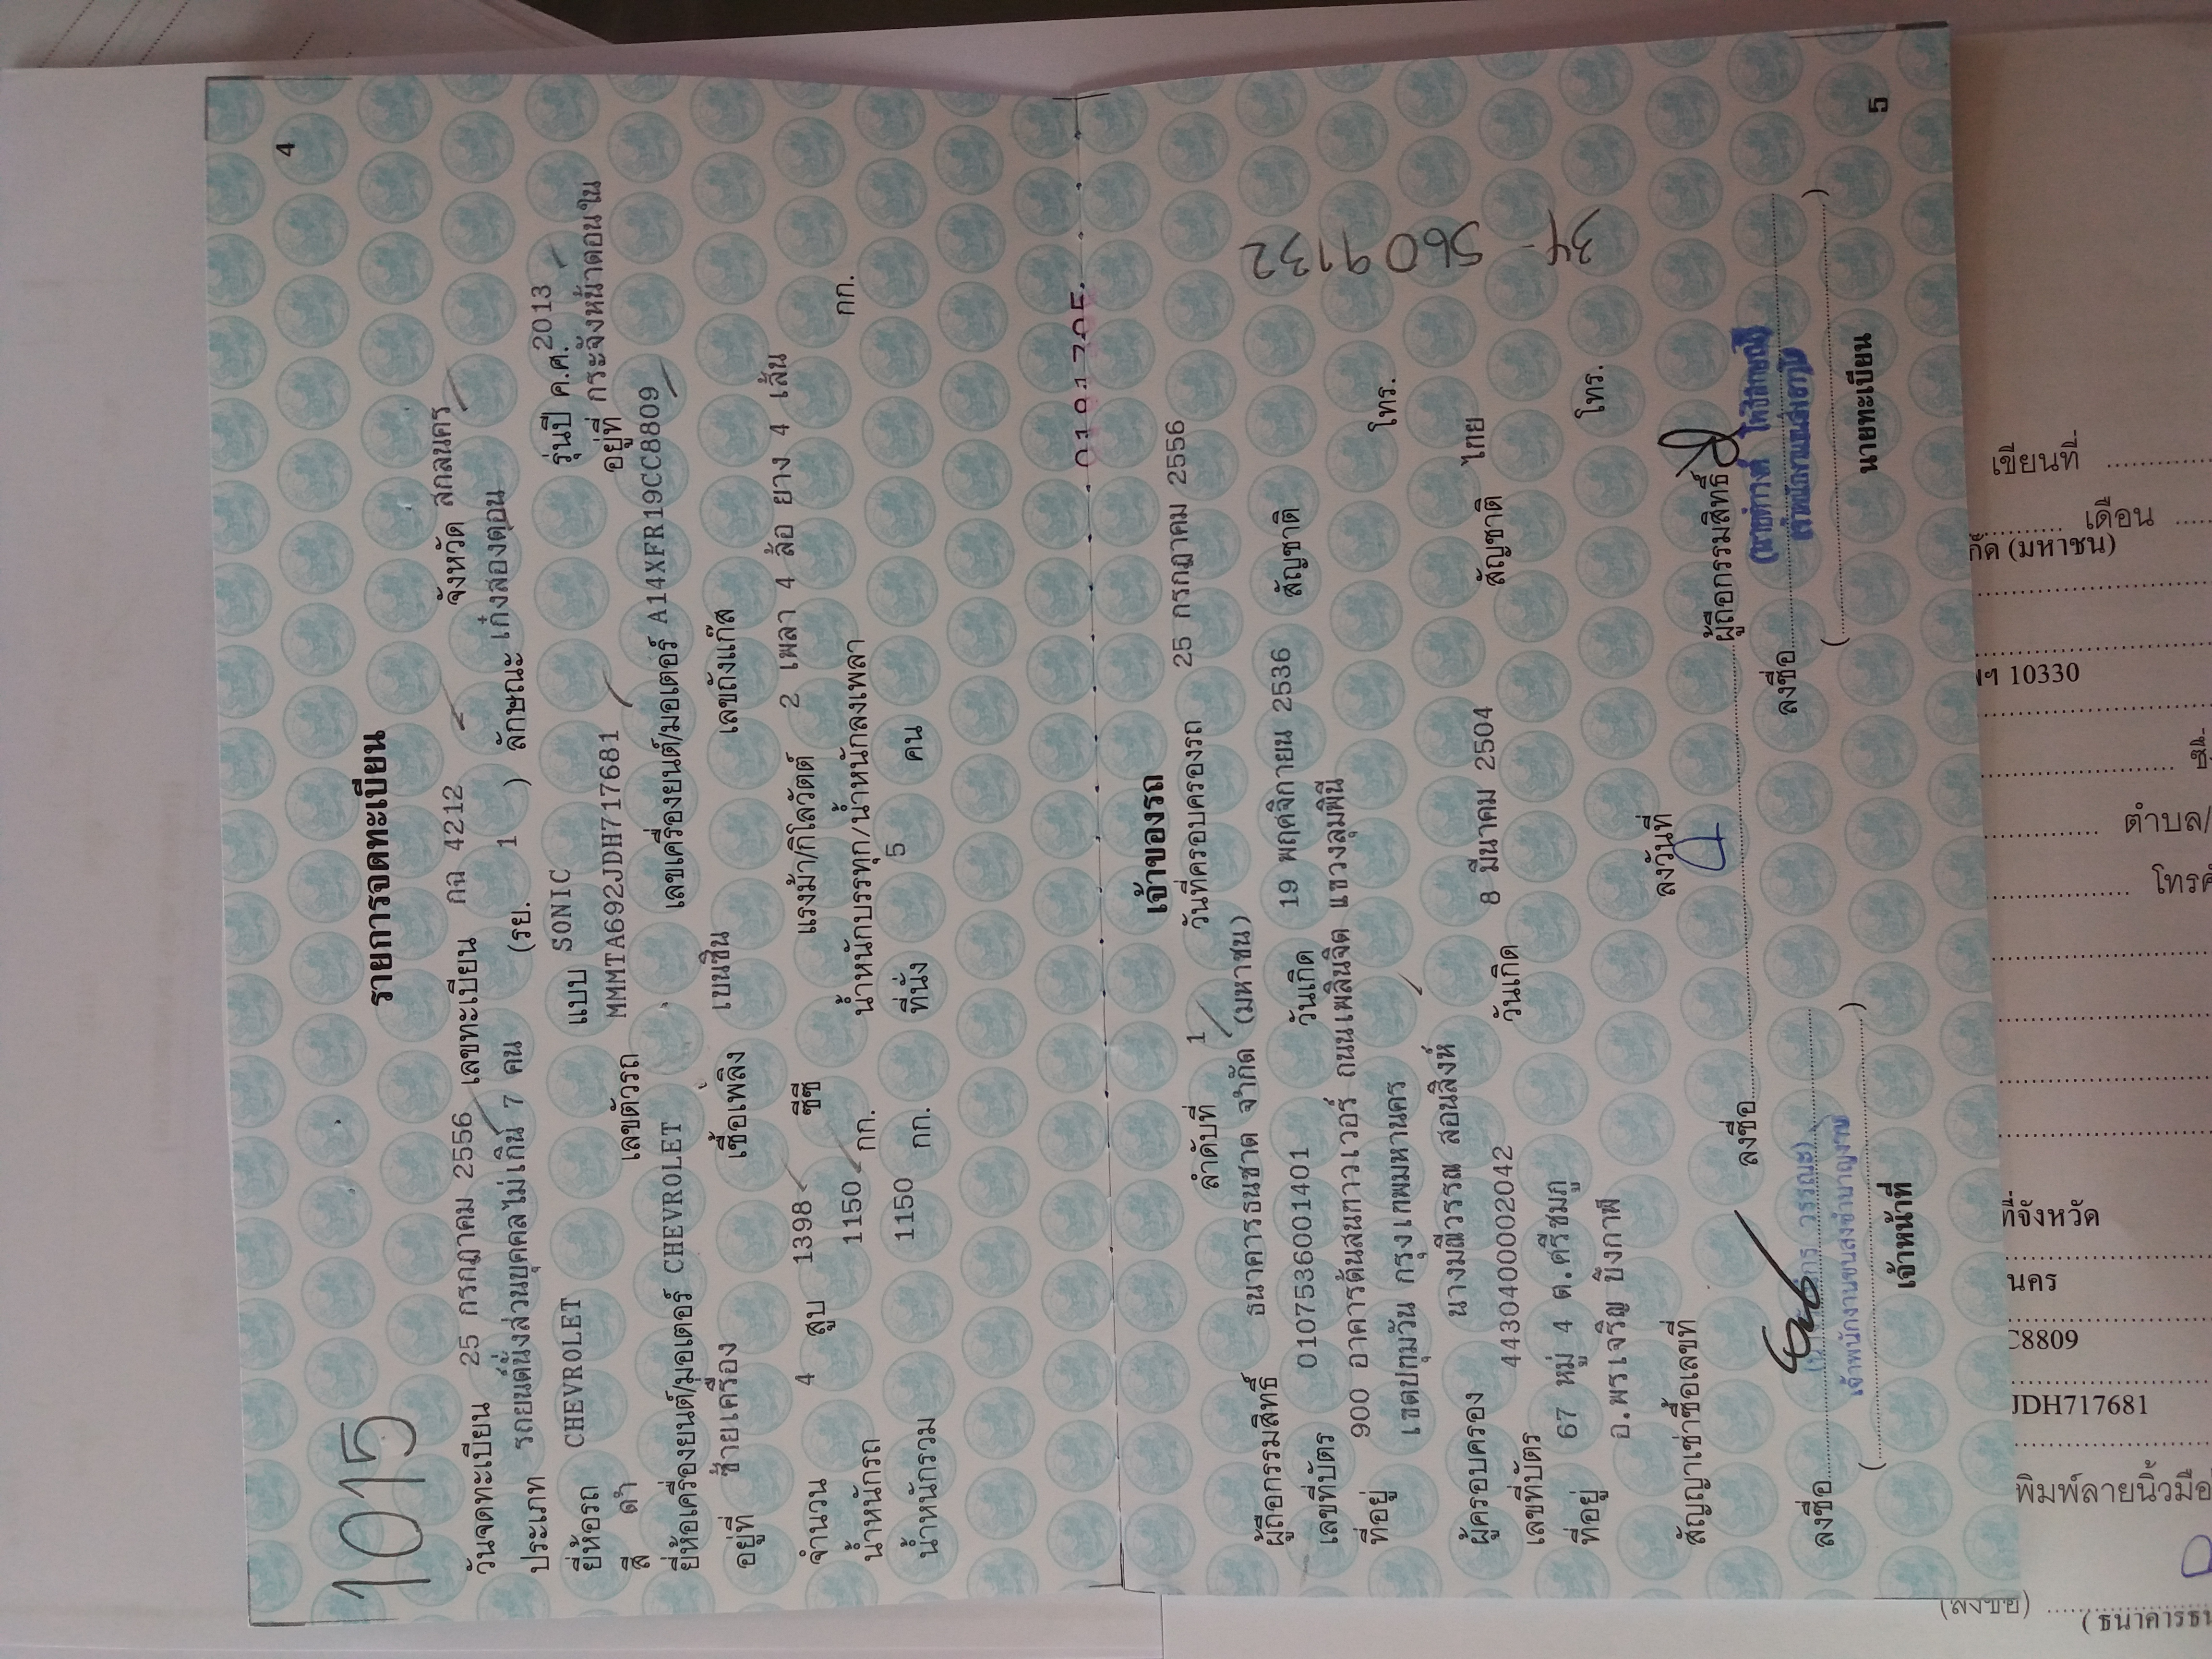 1015
4
รายการจดทะเบียน
วันจดทะเบียน 25 กรกฎาคม 2556 เลขทะเบียน กฉ 4212 จังหวัด สกลนคร
ประเภท รถยนต์นั่งส่วนบุคคลไม่เกิน 7 คน (รย. 1 ) ลักษณะ เก๋งสองตอน
ยี่ห้อรถ CHEVROLET แบบ SONIC รุ่นปี ค.ศ. 2013
สี ดำ เลขตัวรถ MMMTA692JDH717681 อยู่ที่ กระจังหน้าตอนใน
ยี่ห้อเครื่องยนต์/มอเตอร์ CHEVROLET เลขเครื่องยนต์/มอเตอร์ A14XFR19CC8809
อยู่ที่ ซ้ายเครื่อง เชื้อเพลิง เบนซิน เลขถังแก๊ส
จำนวน 4 สูบ 1398 ซีซี แรงม้า/กิโลวัตต์ 2 เพลา 4 ล้อ ยาง 4 เส้น
น้ำหนักรถ 1150 กก. น้ำหนักบรรทุก/น้ำหนักลงเพลา กก.
น้ำหนักรวม 1150 กก. ที่นั่ง 5 คน
เจ้าของรถ
ลำดับที่ 1 วันที่ครอบครองรถ 25 กรกฎาคม 2556
ผู้ถือกรรมสิทธิ์ ธนาคารธนชาต จำกัด (มหาชน)
เลขที่บัตร 0107536001401 วันเกิด 19 พฤศจิกายน 2536 สัญชาติ
ที่อยู่ 900 อาคารต้นสนทาวเวอร์ ถนนเพลินจิต แขวงลุมพินี
เขตปทุมวัน กรุงเทพมหานคร โทร.
ผู้ครอบครอง นางมณีวรรณ สอนสิงห์
เลขที่บัตร 4430400002042 วันเกิด 8 มีนาคม 2504 สัญชาติ ไทย
ที่อยู่ 67 หมู่ 4 ต.ศรีชมภู
อ.พรเจริญ บึงกาฬ โทร.
34-5609132
สัญญาเช่าซื้อเลขที่ ลงวันที่
ลงชื่อ ผู้ถือกรรมสิทธิ์
ลงชื่อ ลงชื่อ
วรรณะ)
เจ้าพนักงานขนส่งชำนาญงาน
เจ้าหน้าที่ นายทะเบียน
5
เขียนที่
เดือน
(มหาชน)
10330
ตำบล/
ที่จังหวัด
นคร
C8809
JDH717681
พิมพ์ลายนิ้วมือ
(ลงชื่อ)